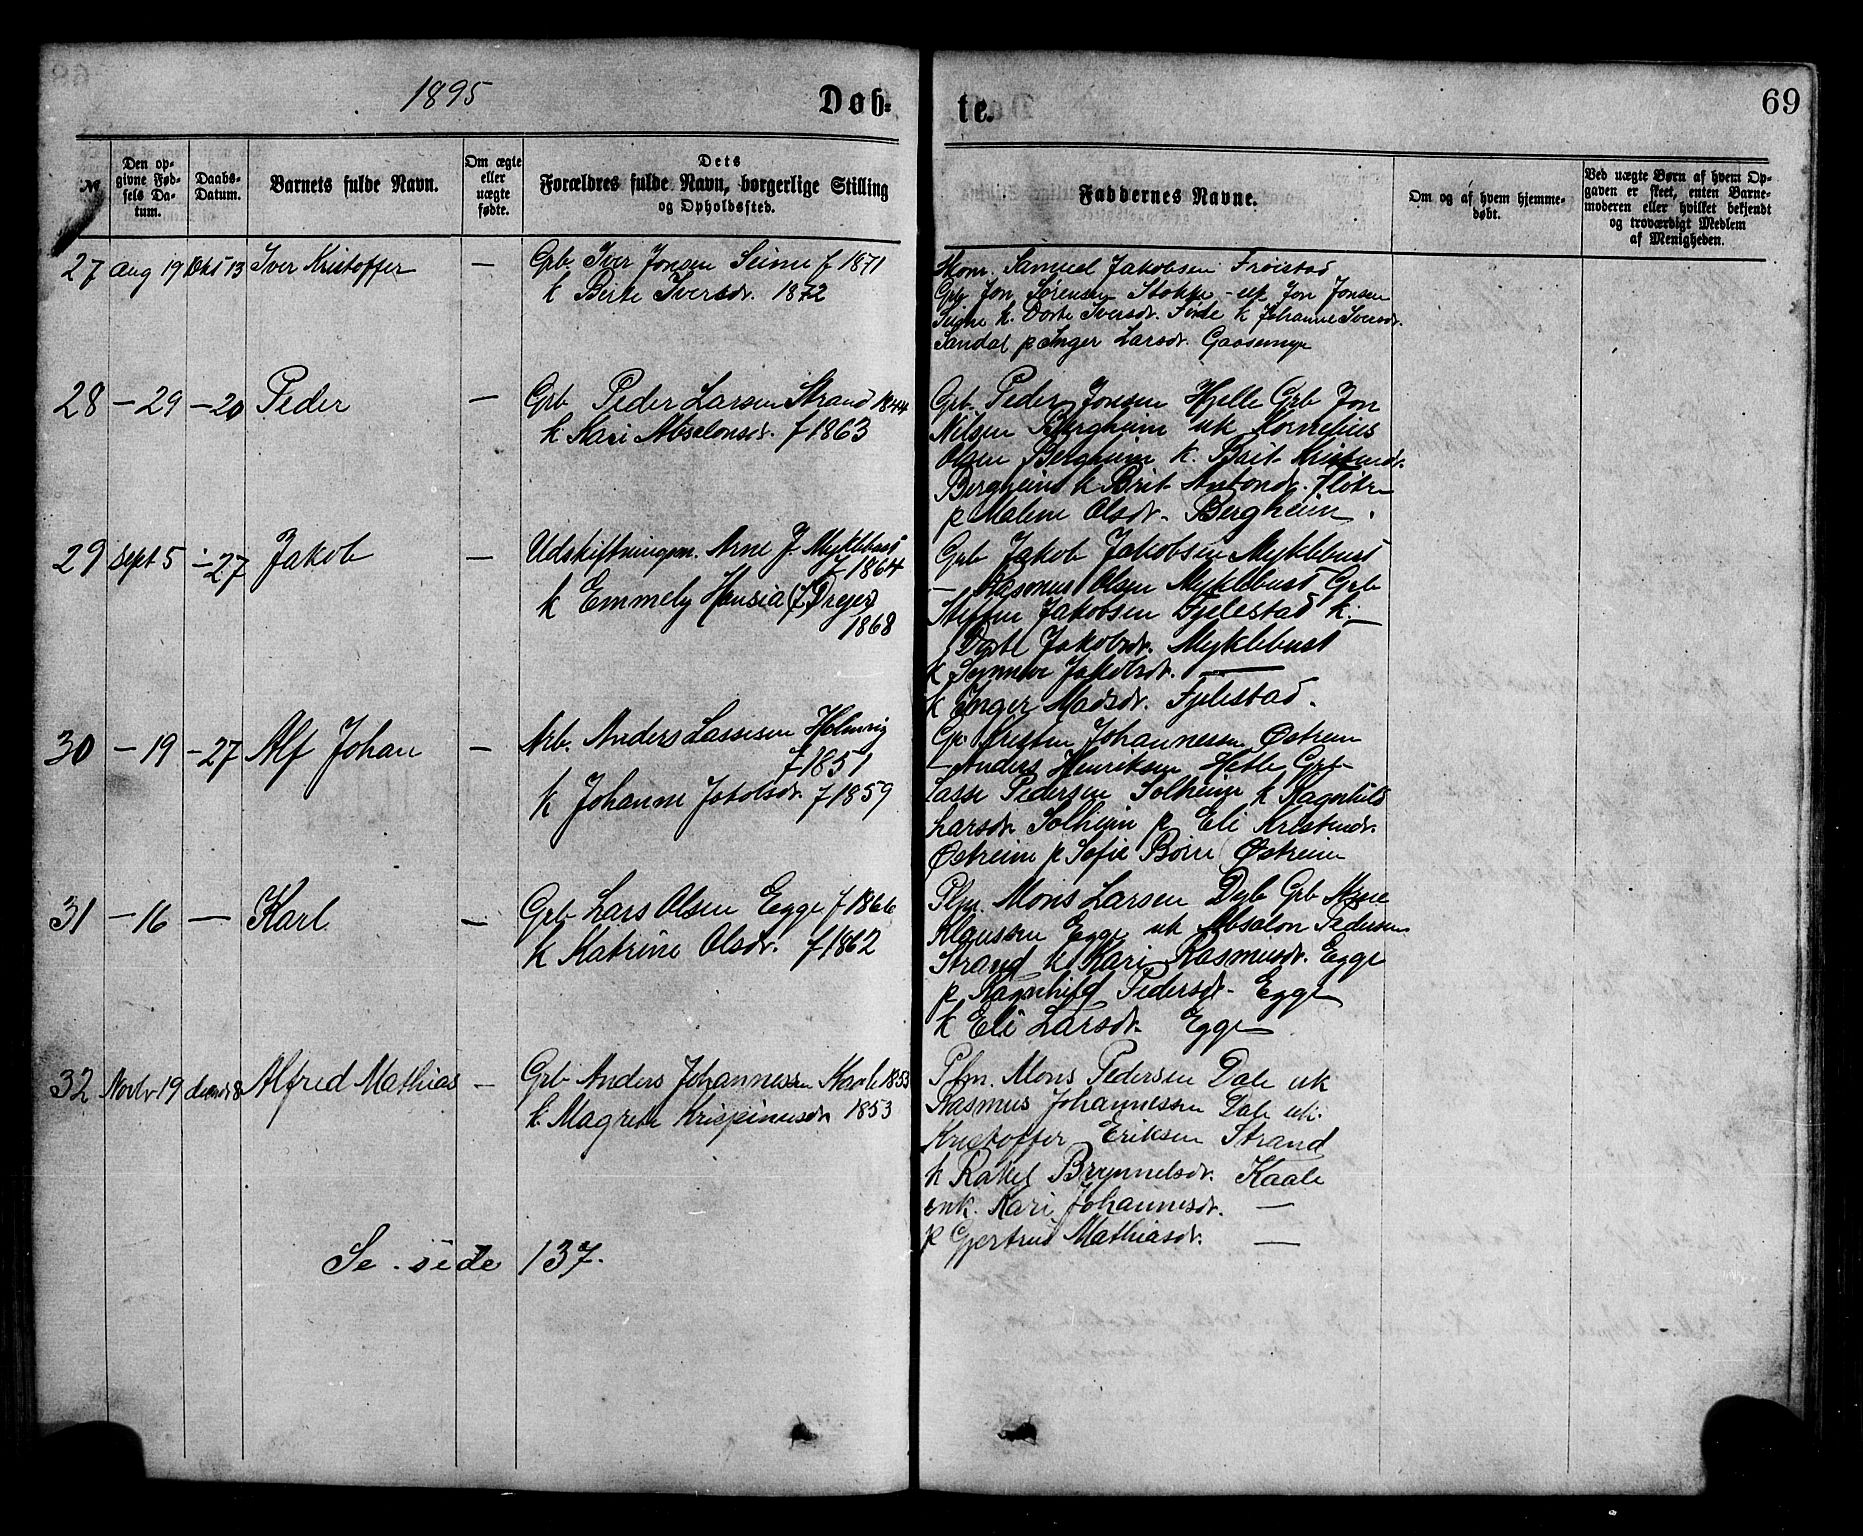 1895
Døb-
te.
69
№
Den op-
givne Fød-
sels Da-
tum.
Daabs-
Datum.
Barnets fulde Navn.
Om ægte
eller
uægte
fødte.
Dets
Forældres fulde Navn, borgerlige Stilling
og Opholdssted.
Faddernes Navne.
Om og af hvem hjemme-
døbt.
Ved uægte Børn af hvem Op-
gaven er skeet, enten Barne-
moderen eller hvilket bekjendt
og troværdigt Medlem
af Menigheden.
27 Aug 19 Okt 13 Iver Kristoffer —
Grb Iver Jonsen Seime f 1871
k Berte Iversdr. 1872
Samuel Jakobsen Frøistad
Grb Jon Sørensen Stokke - uk Jon Jonsen
k. Dorte Iversdr. Førde k Johanne Iversdr.
Sandal p Inger Larsdr. Gaasemyr
28 — 29 — 20 Peder —
Grb Peder Larsen Strand 1844
k. Kari Absalonsdr. f 1863
Grb. Peder Jonsen Hjelle Grb Jon
Nilsen Bergheim uk Kornelius
Olsen Bergheim k. Brit Kristendr.
Bergheim k Brit Antondr. Flöten
p Malene Olsdr. Bergheim.
29 Sept 5 — 27 Jakob —
Udskiftningsm. Arne J Myklebust
f 1864
k Emmely Hansia (f Dreyer)
1868
Grb Jakob Jakobsen Myklebust
— Rasmus Olsen Myklebust Grb
Steffen Jakobsen Fjelestad k.
Dorte Jakobsdr. Myklebust
k Synneve Jakobsdr. —
k Inger Madsdr. Fjelestad.
30 — 19 — 27 Alf Johan —
Arb. Anders Lassesen Holmvig
f 1851
k Johanne Jakobsdr. f 1859
Gp Kristen Johannessen Østrem
— Anders Henriksen Hetle Grb
Lasse Pedersen Solheim k Ragnhild
Larsdr. Solheim p Eli Kristendr.
Østreim p Sofie Østreim
31 — 16 — Karl —
Grb Lars Olsen Egge f 1866
k Katrine Olsdr. f 1862
Plm. Mons Larsen Dvb Grb Arne
Klaussen Egge uk Absalon Pedersen
Strand k Kari Rasmusdr. Egge
p Ragnhild Pedersdr. Egge
k Eli Larsdr. Egge
32 Novbr 19 decmbr 8 Alfred Mathias —
Grb Anders Johannessen Kaale 1853
k. Magrete Krispinusdr 1853
Plm. Mons Pedersen Dale uk
Rasmus Johannessen Dale uk.
Kristoffer Eriksen Strand
k Rakel Brynnelsdr. Kaale
enk. Kari Johannesdr. —
p Gjertrud Mathiasdr. —
Se side 137.